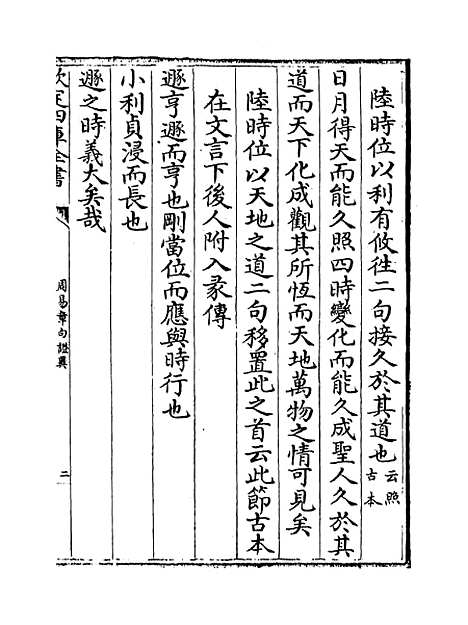 陸時位以利有攸徃二句接久於其道也云照古本
日月得天而能久照四時變化而能久成聖人久於其
道而天下化成觀其所恆而天地萬物之情可見矣
陸時位以天地之道二句移置此之首云此節古本
在文言下後人附入彖傳
遯亨遯而亨也剛當位而應與時行也
小利貞浸而長也
遯之時義大矣哉
欽定四庫全書
周易章句證異
二